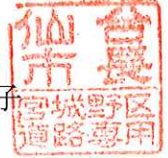 子
仙台
市長
宮城野区
道路専用